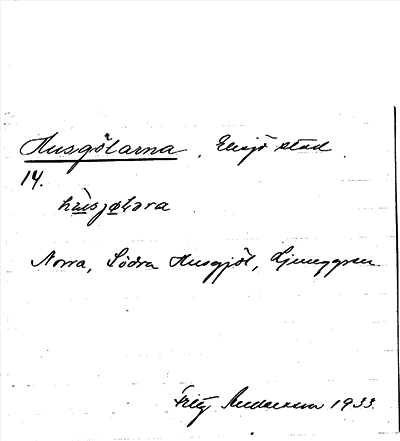 Husgölarna, Eksjö stad.
14.
hu̱sjø̱lara
Norra, Södra Husgjöl, Ljunggren
Fritz Andersson 1933.